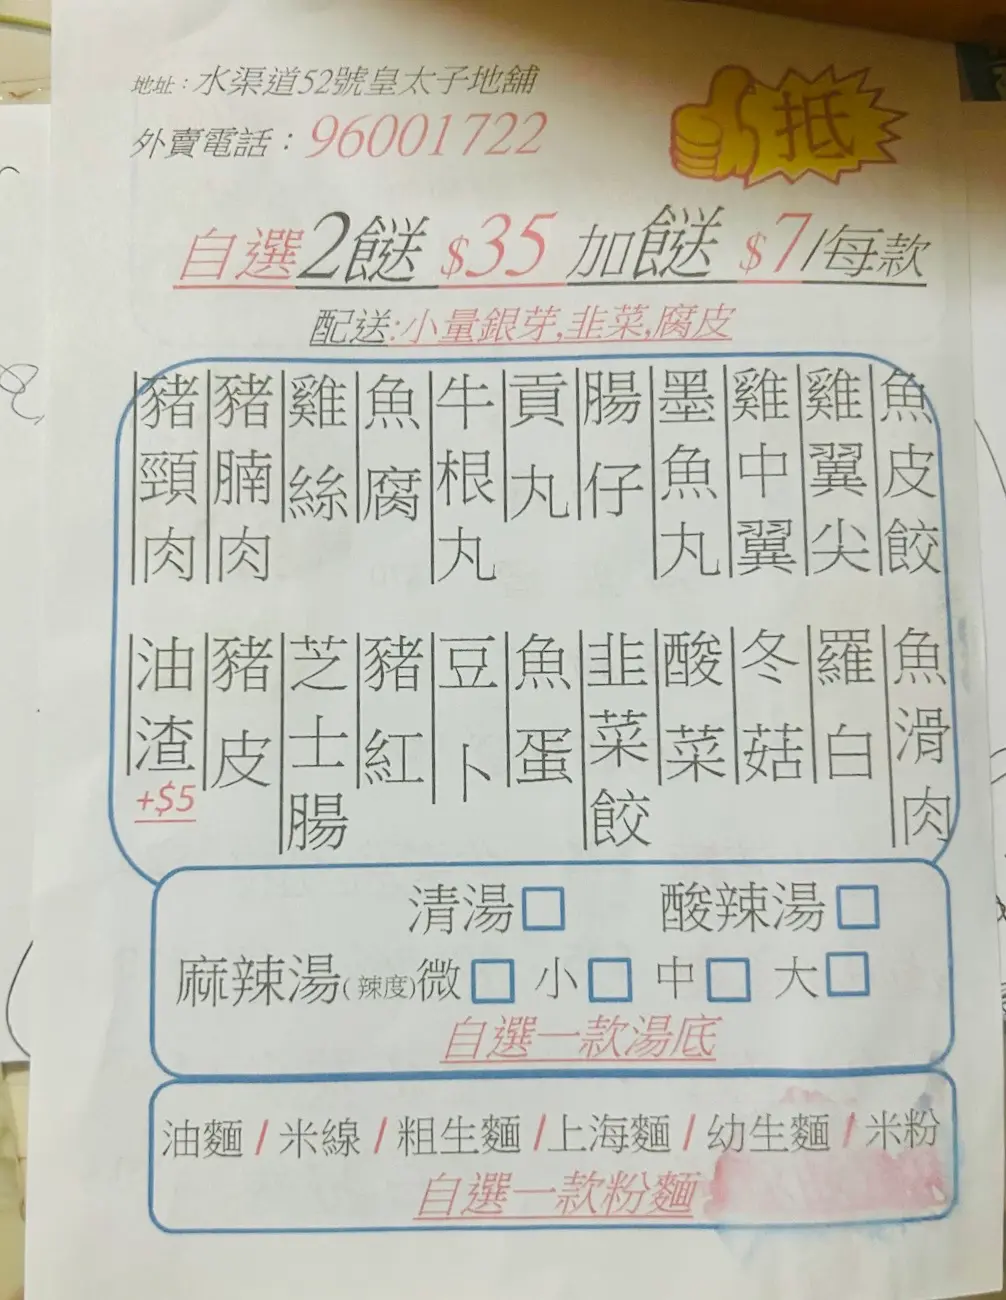 地址：水渠道52號皇太子地舖
外賣電話：96001722
抵
自選2餸 $35 加餸 $7/每款
配送:小量銀芽,韭菜,腐皮
豬頸肉
豬腩肉
雞絲
魚腐
牛根丸
貢丸
腸仔
墨魚丸
雞中翼
雞翼尖
魚皮餃
油渣
+$5
豬皮
芝士腸
豬紅
豆卜
魚蛋
韭菜餃
酸菜
冬菇
羅白
魚滑肉
清湯 酸辣湯
麻辣湯(辣度)微 小 中 大
自選一款湯底
油麵/米線/粗生麵/上海麵/幼生麵/米粉
自選一款粉麵